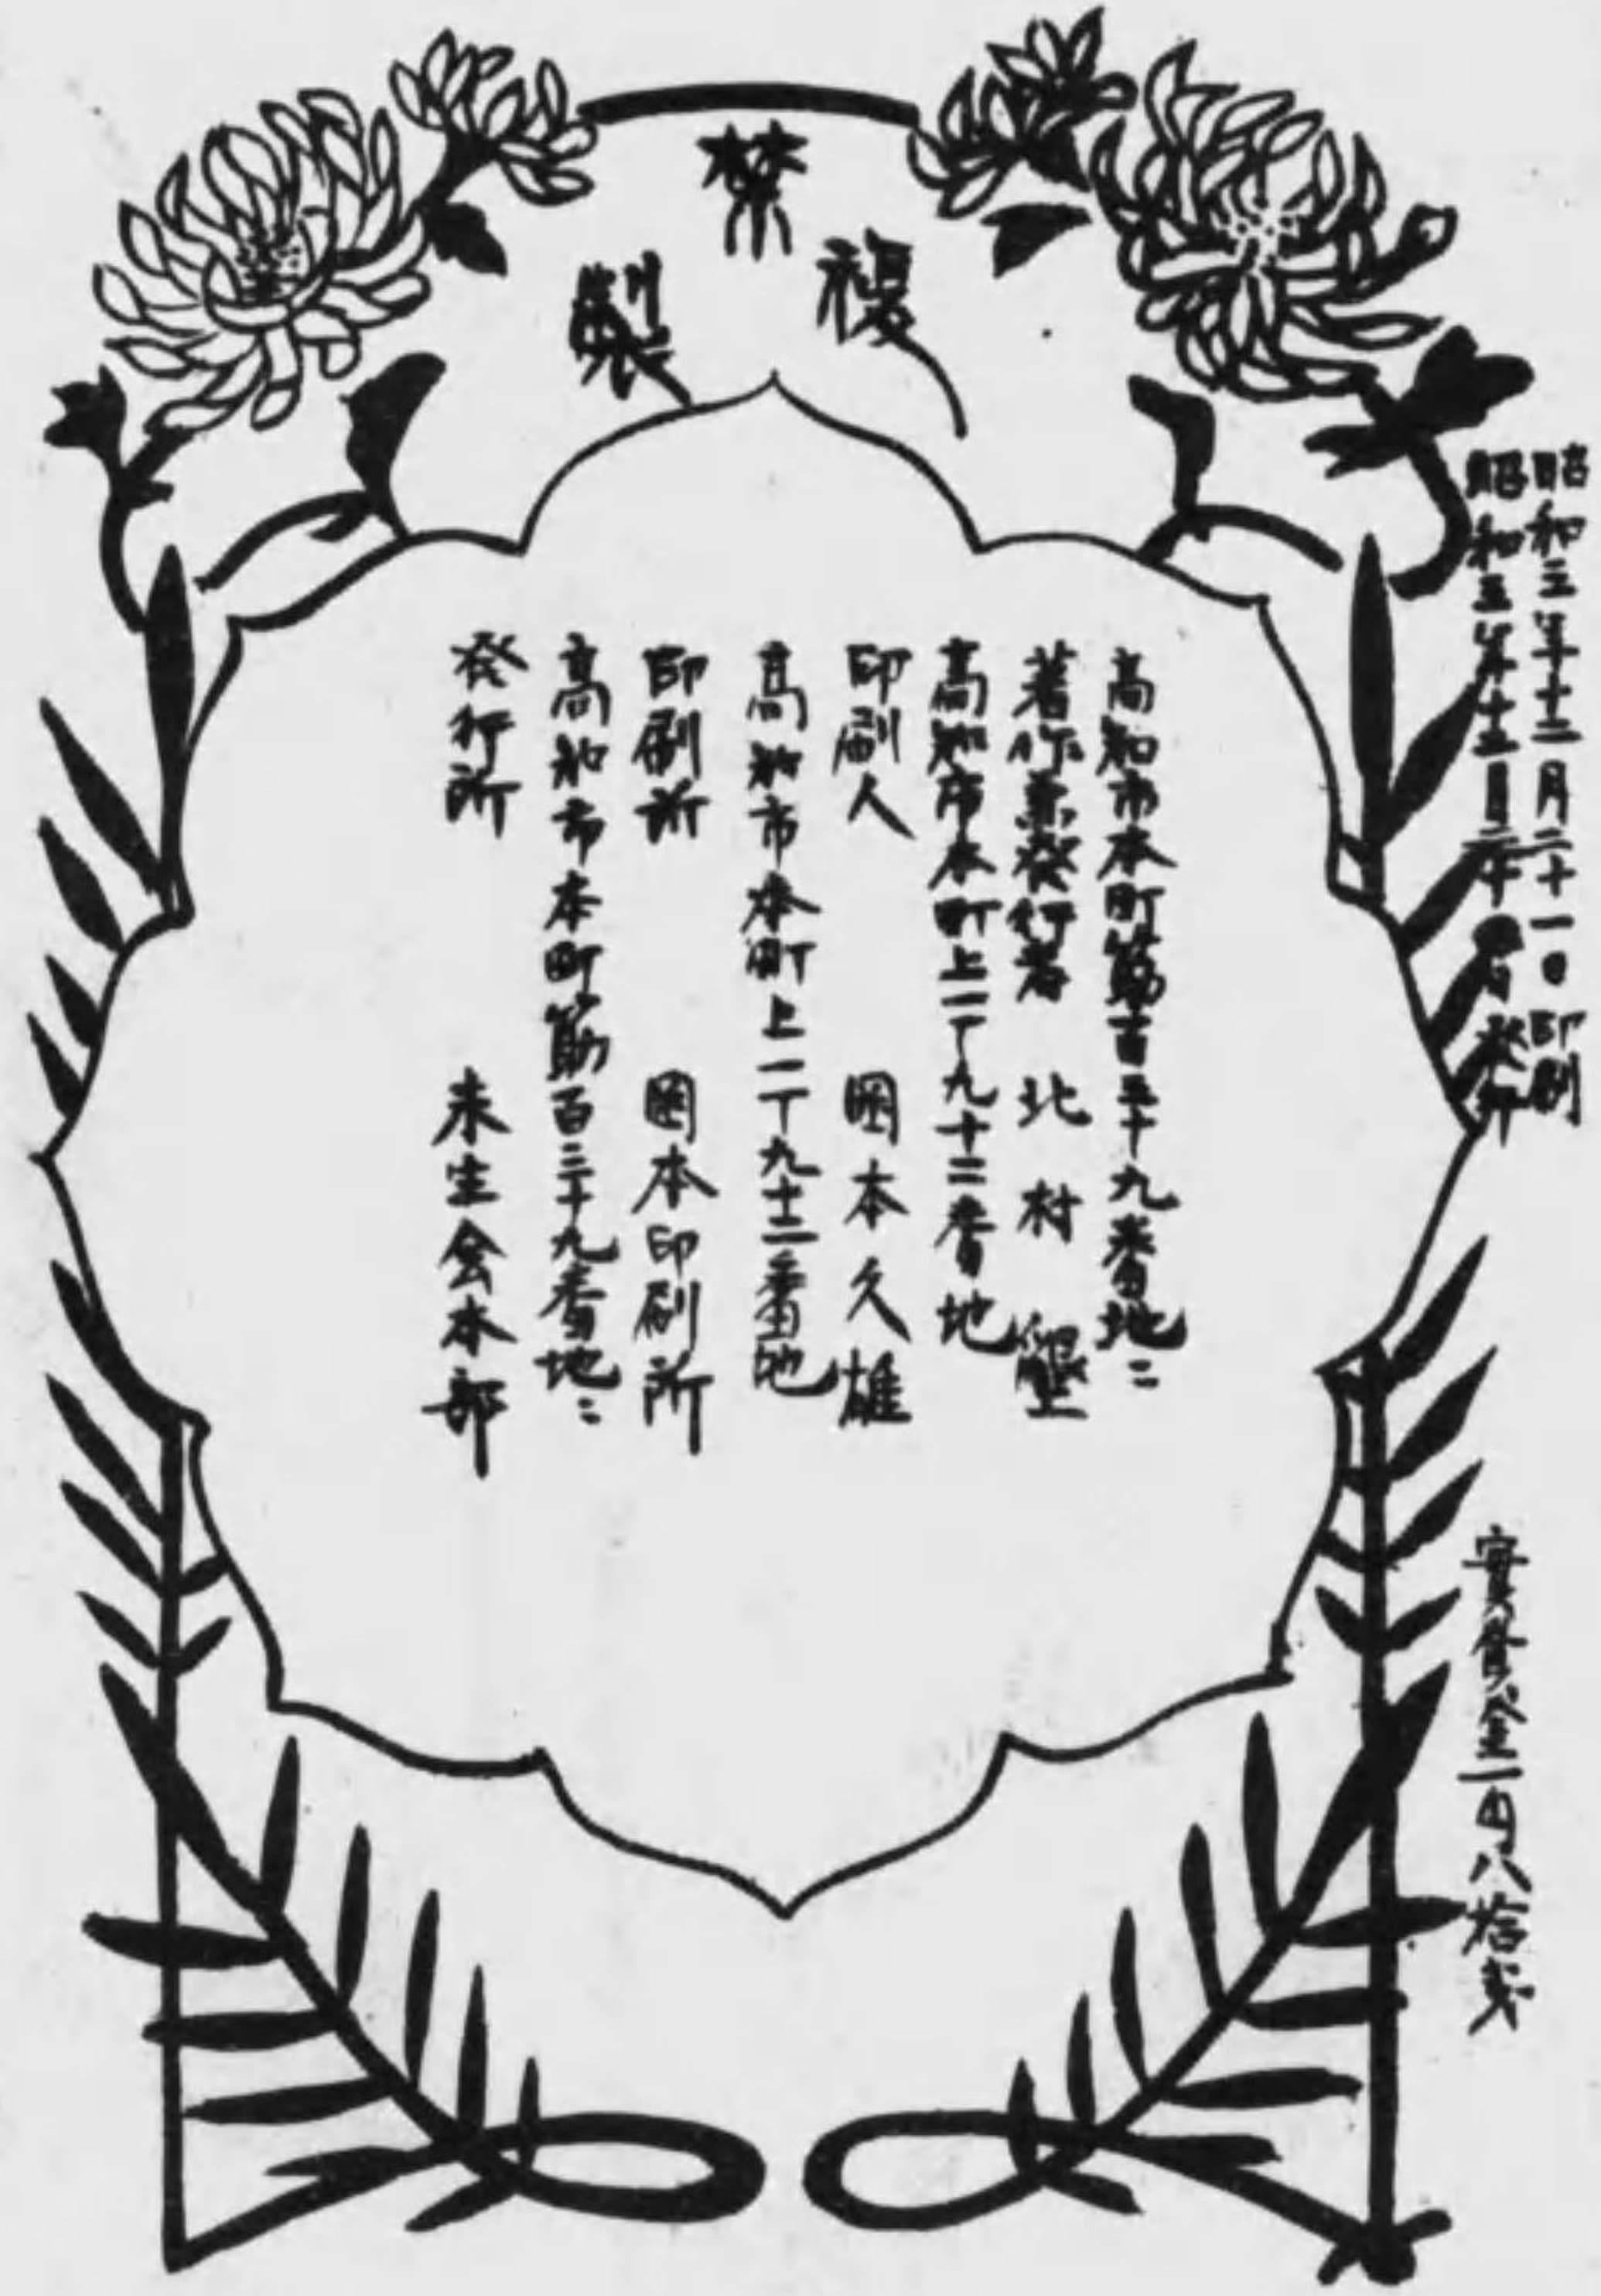 昭和三年十二月二十一日印刷
昭和三年十二月二十 日発行
實費金一円八拾戔
禁
複製
高知市本町筋百五十九番地ニ
著作兼發行者 北村 墾
高知市本町上一丁九十二番地
印刷人 岡本久雄
高知市本町上一丁九十二番地
印刷所 岡本印刷所
高知市本町筋百三十九番地ニ
発行所 未生会本部